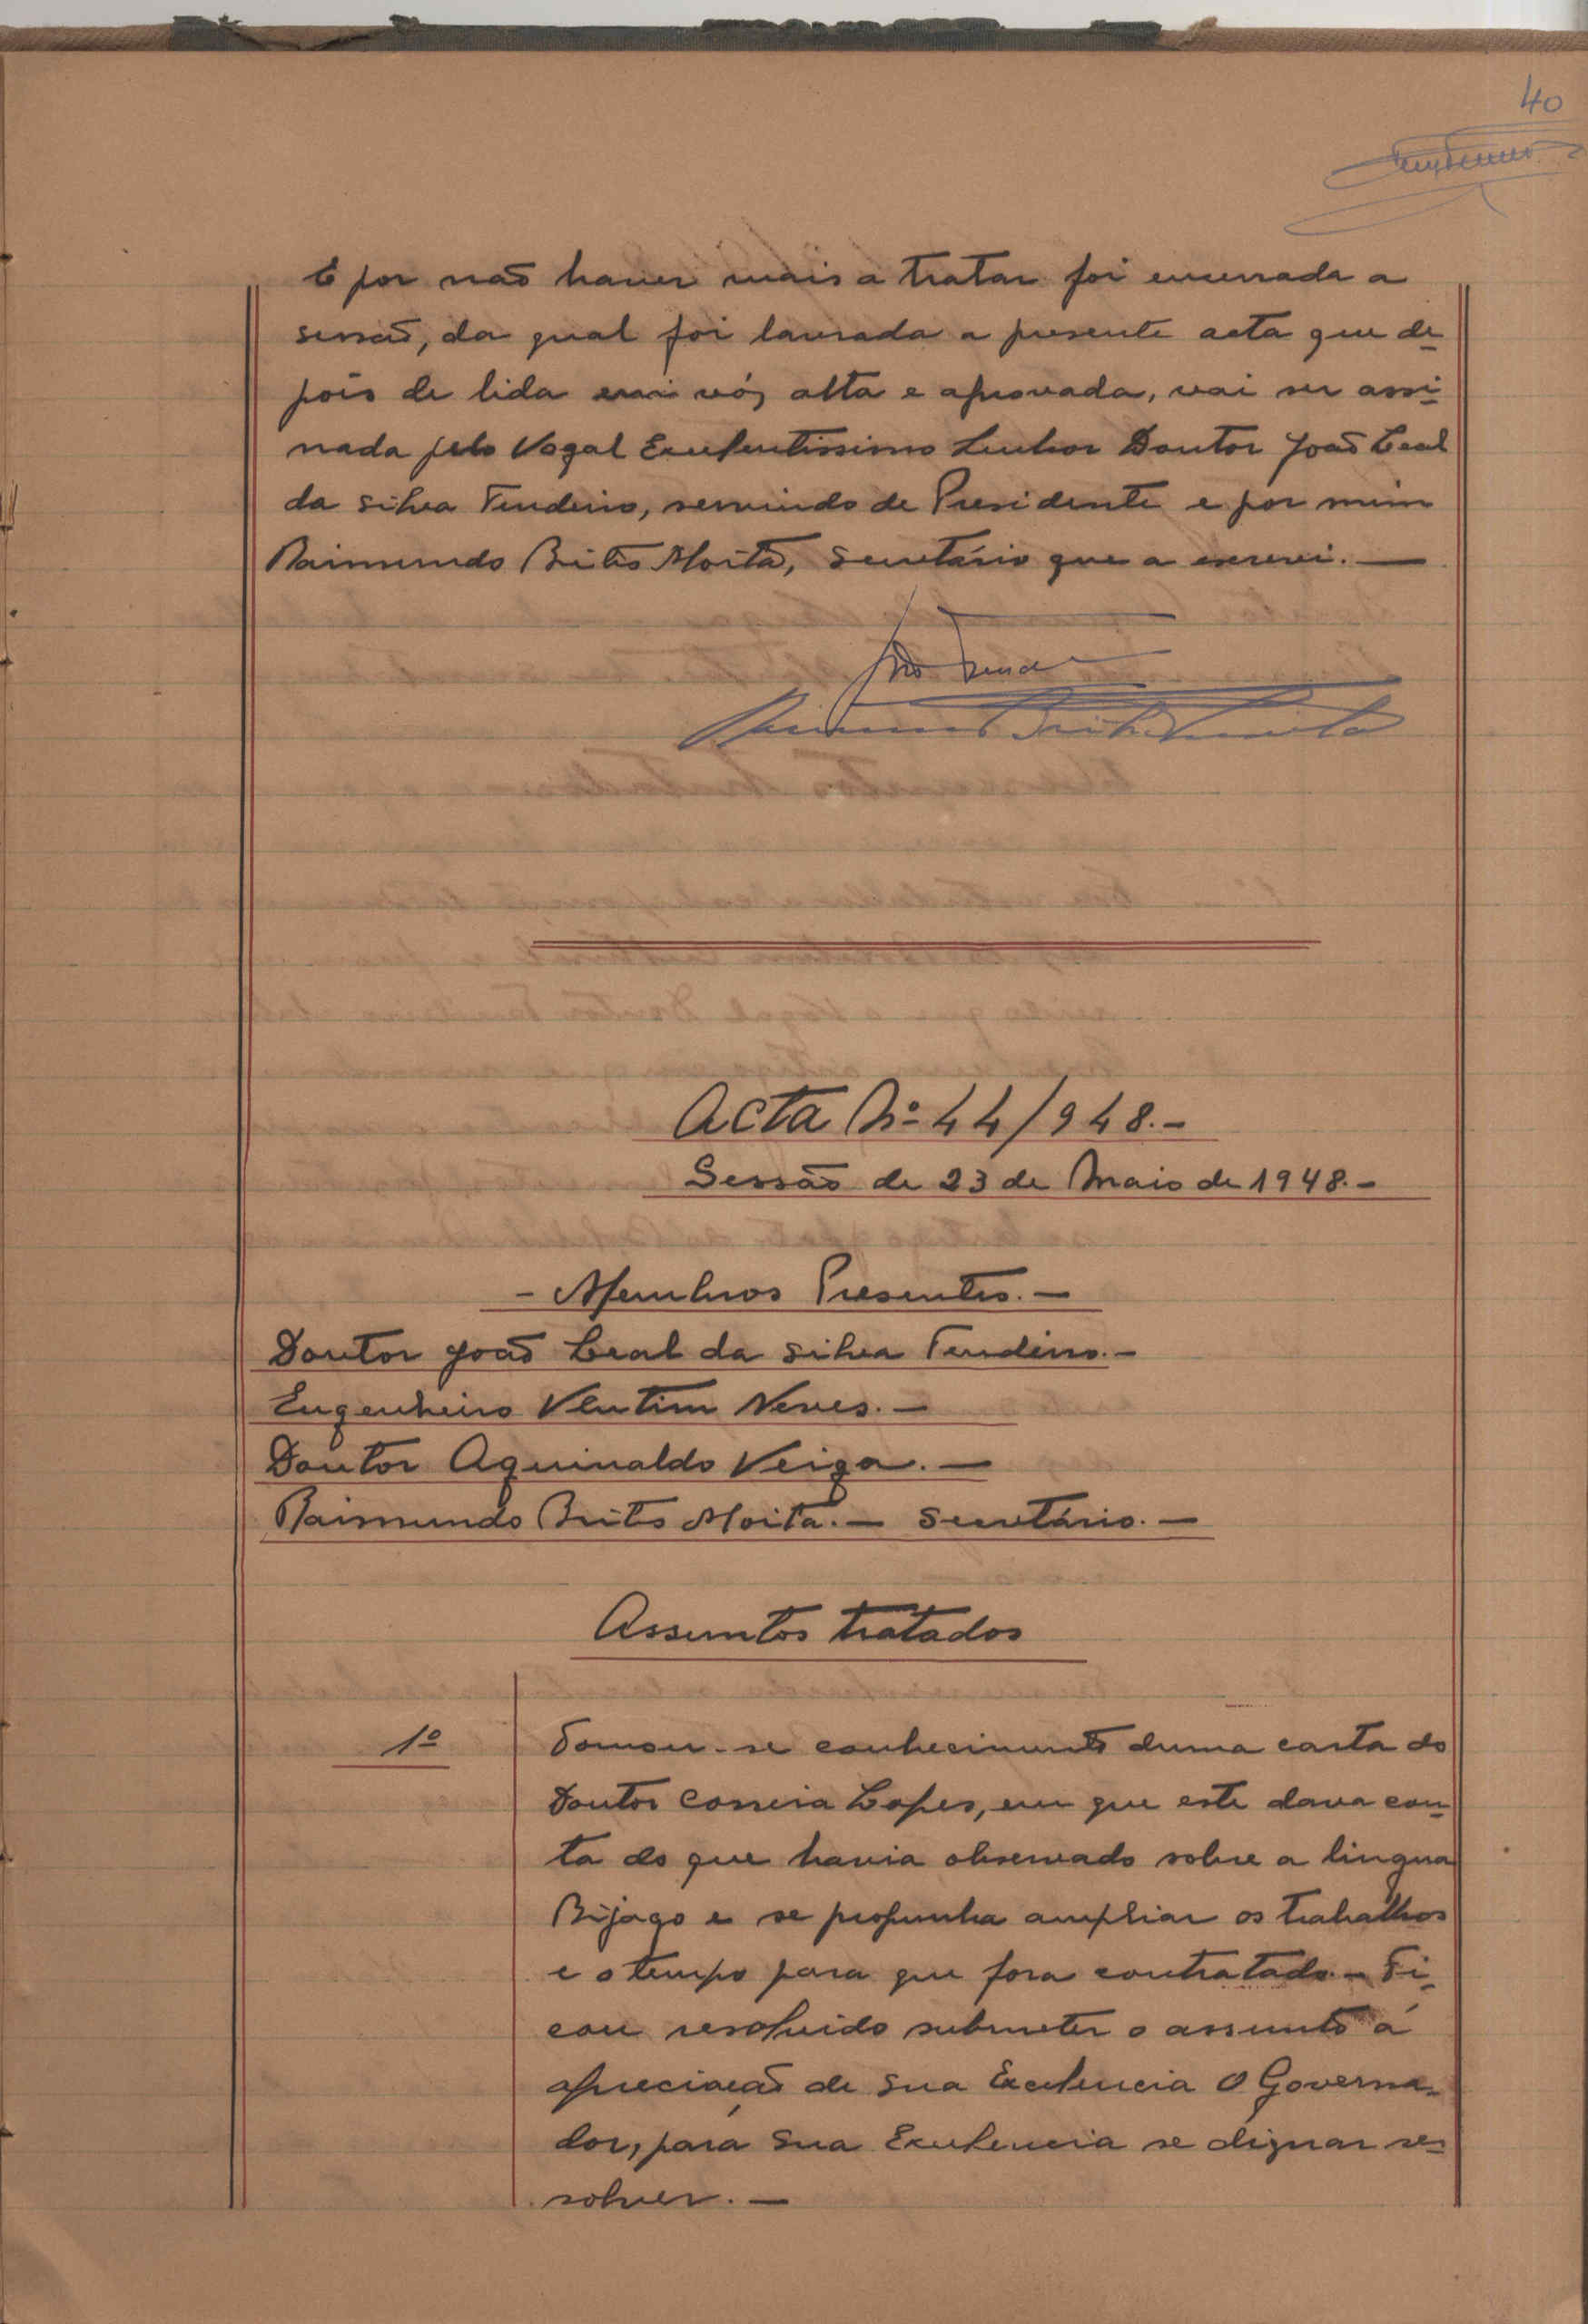 40
E por não haver mais a tratar foi encerrada a
sessão, da qual foi lavrada a presente acta que de-
pois de lida em vóz alta e aprovada, vai ser assi-
nada pelo Vogal Excelentissimo Senhor Doutor João Leal
da Silva Tendeiro, servindo de Presidente e por mim
Raimundo Brito Moita, Secretário que a escrevi. —
João Tendeiro
Raimundo Brito Moita
Acta Nº 44/948.-
Sessão de 23 de Maio de 1948.-
- Membros Presentes. -
Doutor João Leal da Silva Tendeiro.-
Engenheiro Ventim Neves. -
Doutor Aguinaldo Veiga. -
Raimundo Brito Moita. - Secretário. -
Assuntos tratados
1º
Tomou-se conhecimento duma carta do
Doutor Correia Lopes, em que este dava con-
ta do que havia observado sobre a lingua
Bijago e se propunha ampliar os trabalhos
e o tempo para que fora contratado. - Fi-
cou resolvido submeter o assunto á
apreciação de Sua Excelencia O Governa-
dor, para Sua Excelencia se dignar re-
solver. -